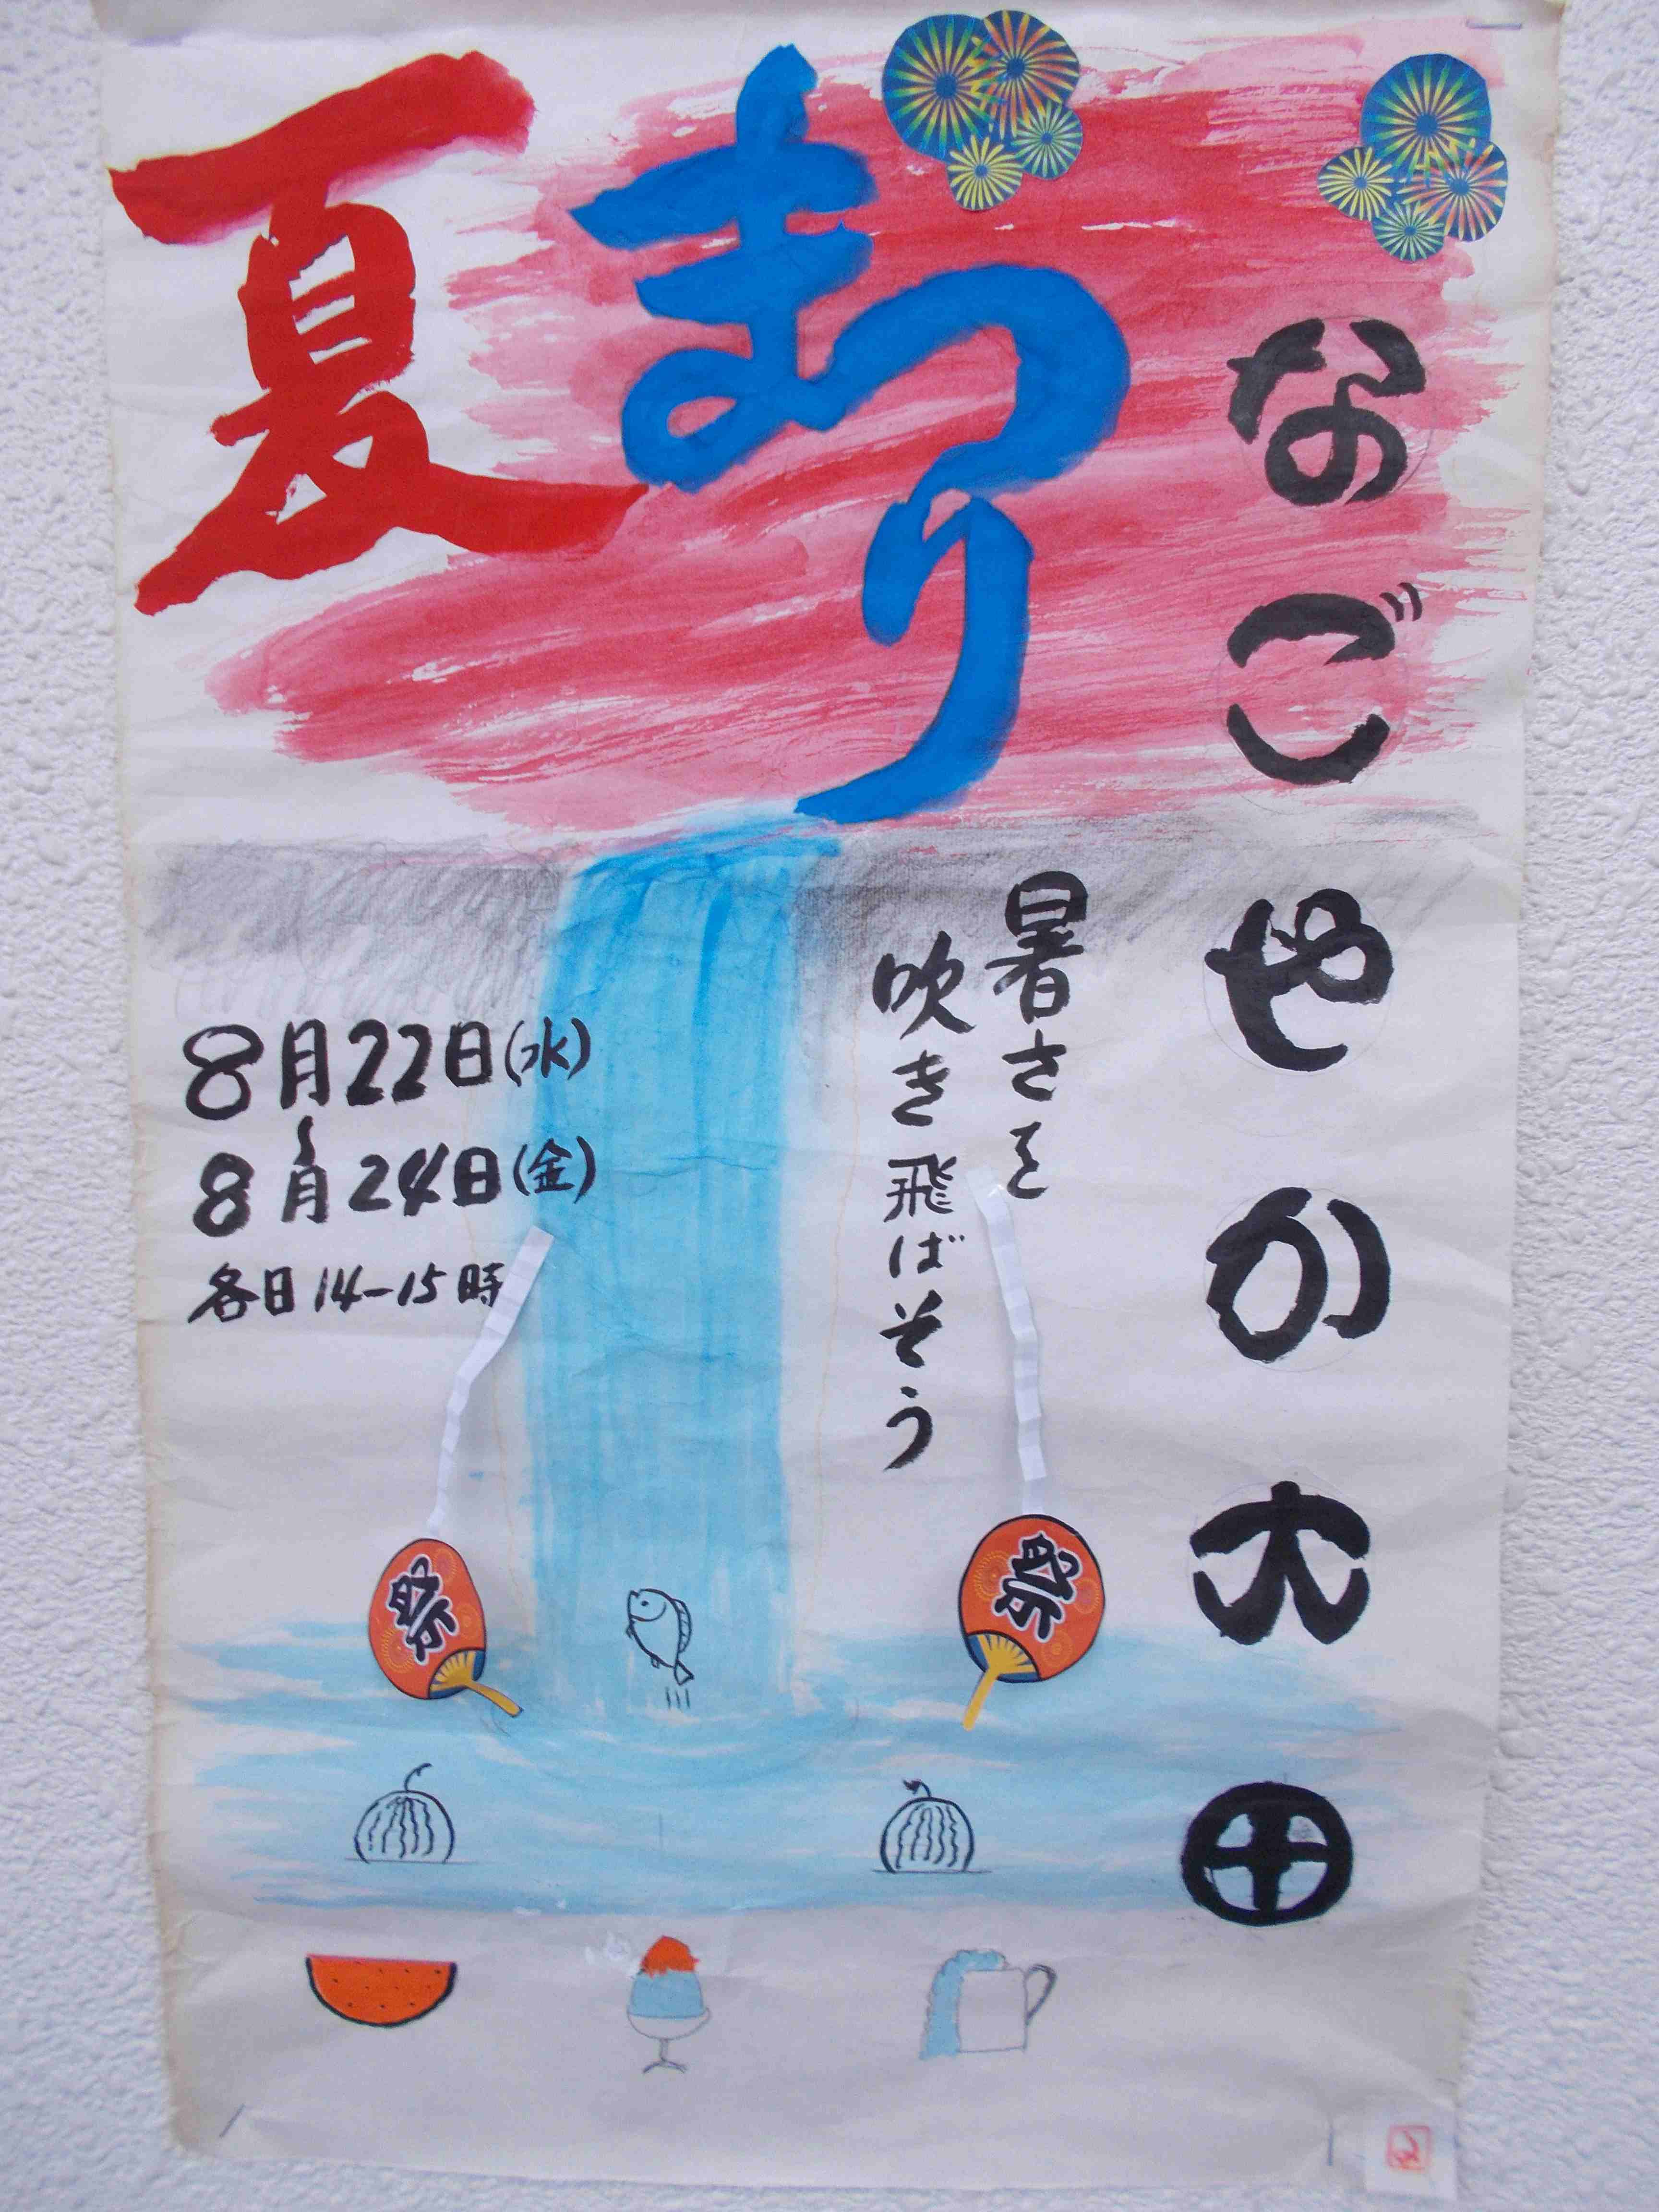 夏まつり
なごやか大田
暑さを
吹き飛ばそう
8月22日(水)
〜
8月24日(金)
各日14-15時
祭
祭